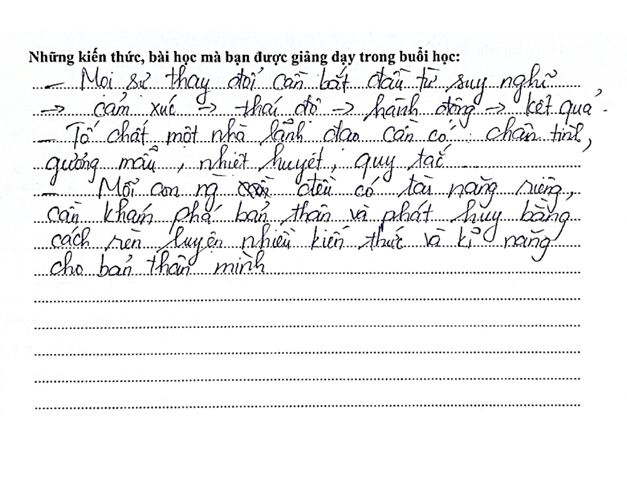 Những kiến thức, bài học mà bạn được giảng dạy trong buổi học:
- Mọi sự thay đổi cần bắt đầu từ suy nghĩ
→ cảm xúc → thái độ → hành động → kết quả.
- Tố chất một nhà lãnh đạo cần có: chân tình,
gương mẫu, nhiệt huyết, quy tắc
- Mỗi con ng đều có tài năng riêng,
cần khám phá bản thân và phát huy bằng
cách rèn luyện nhiều kiến thức và kĩ năng
cho bản thân mình